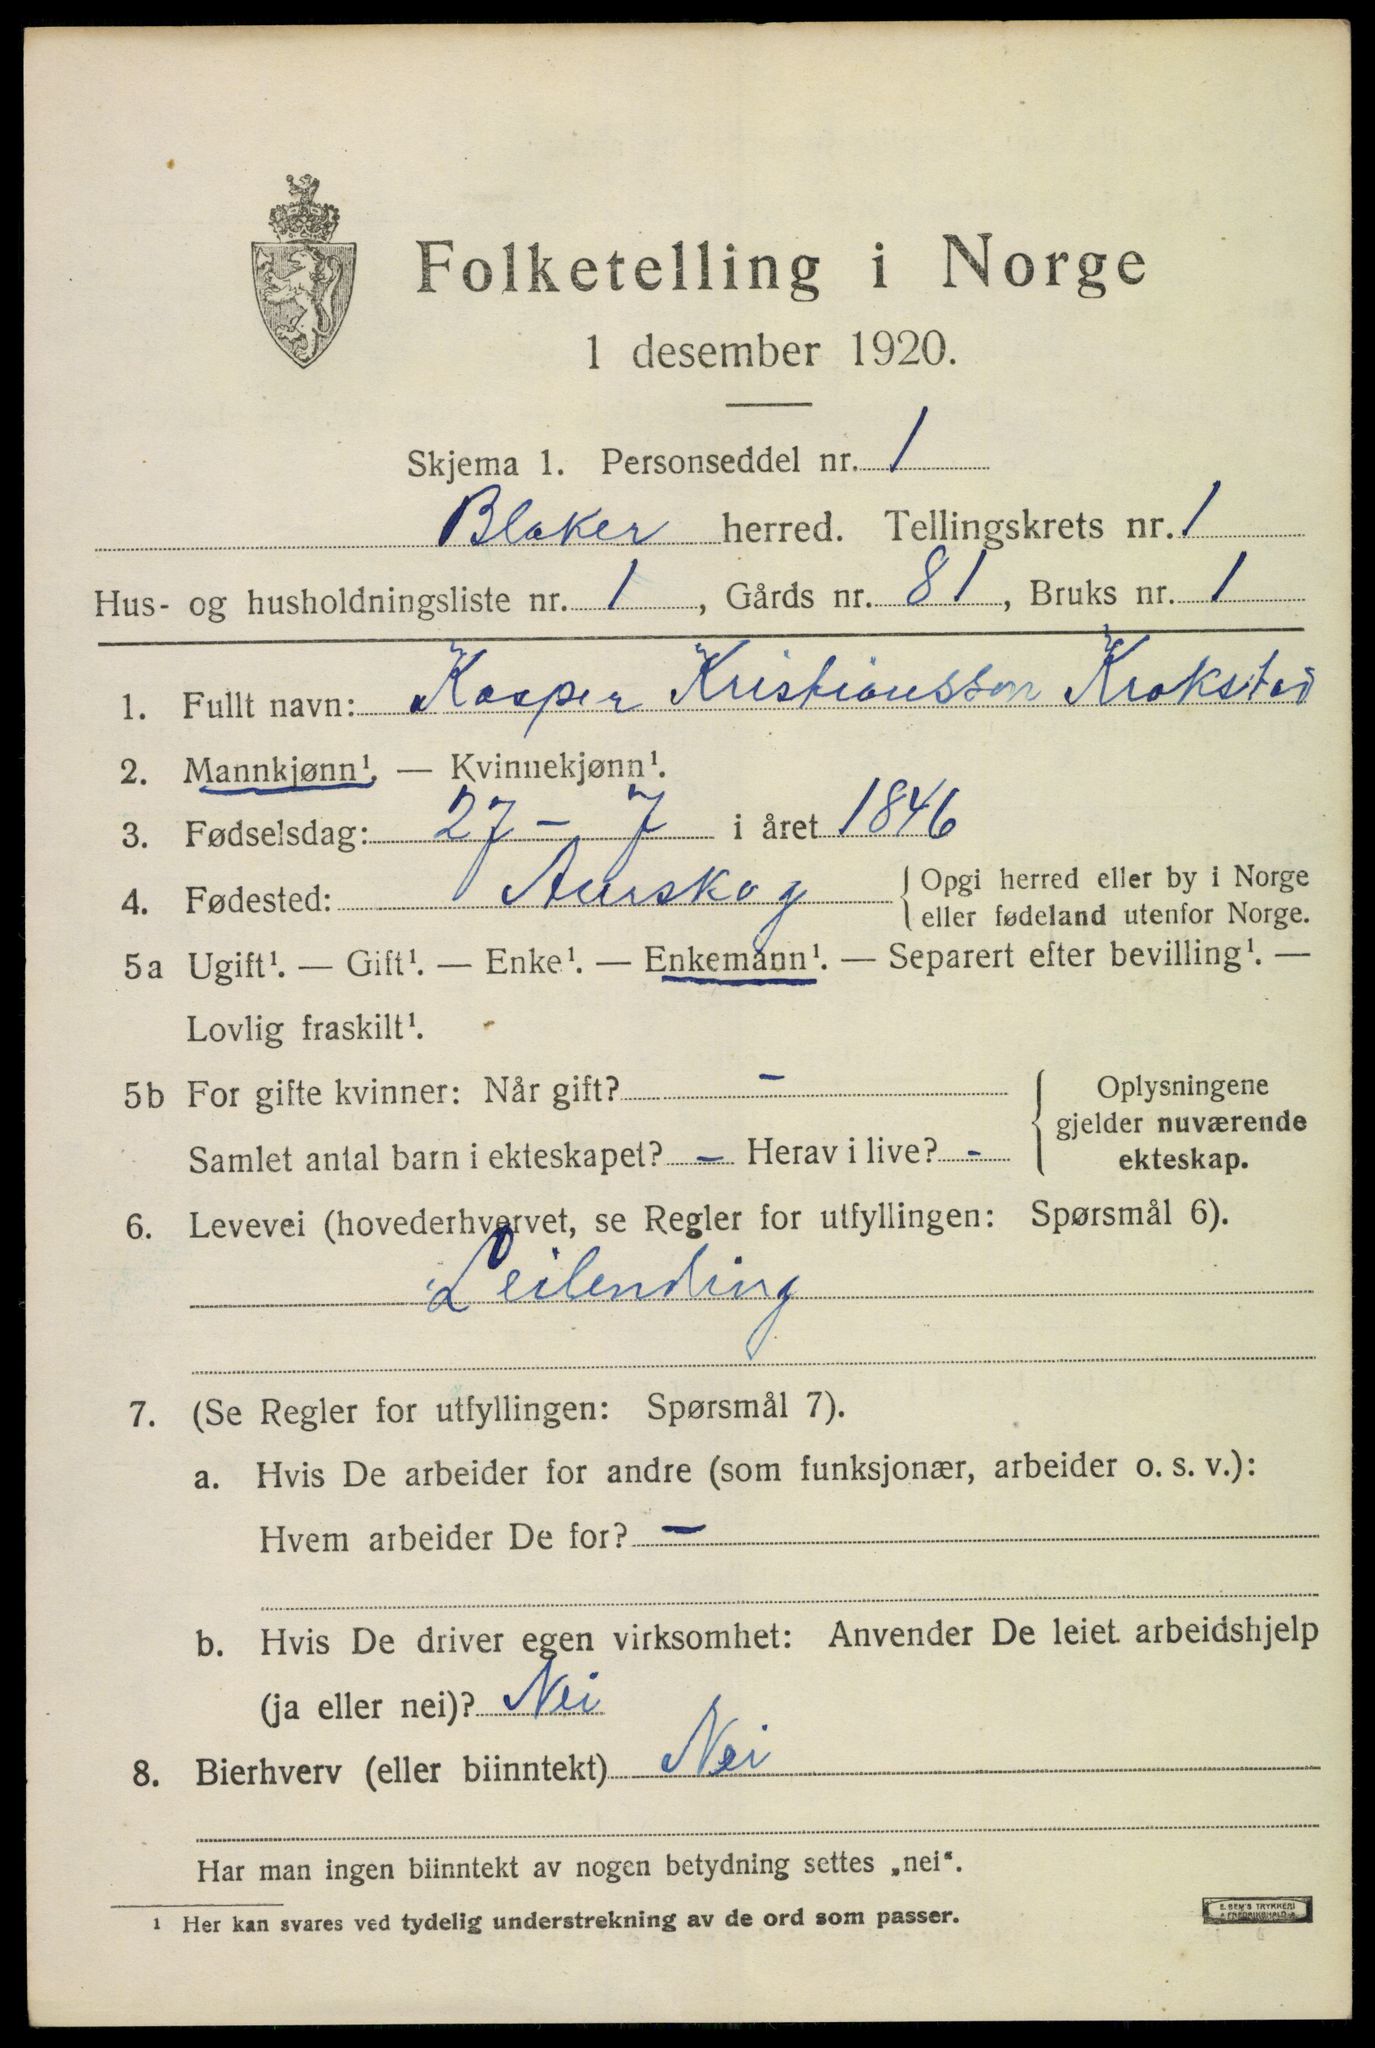 Folketelling i Norge
1 desember 1920.
Skjema 1. Personseddel nr. 1
Blaker herred. Tellingskrets nr. 1
Hus- og husholdningsliste nr. 1, Gårds nr. 81, Bruks nr. 1
1. Fullt navn: Kasper Kristiansson Krokstad
2. Mannkjønn¹. — Kvinnekjønn¹.
3. Fødselsdag: 27 - 7 i året 1846
4. Fødested: Aurskog { Opgi herred eller by i Norge
eller fødeland utenfor Norge.
5a Ugift¹. — Gift¹. — Enke¹. — Enkemann¹. — Separert efter bevilling¹. —
Lovlig fraskilt¹.
5b For gifte kvinner: Når gift? - { Oplysningene
gjelder nuværende
Samlet antal barn i ekteskapet? - Herav i live? - ekteskap.
6. Levevei (hovederhvervet, se Regler for utfyllingen: Spørsmål 6).
Leilending
7. (Se Regler for utfyllingen: Spørsmål 7).
a. Hvis De arbeider for andre (som funksjonær, arbeider o. s. v.):
Hvem arbeider De for? —
b. Hvis De driver egen virksomhet: Anvender De leiet arbeidshjelp
(ja eller nei)? Nei
8. Bierhverv (eller biinntekt) Nei
Har man ingen biinntekt av nogen betydning settes „nei“.
¹ Her kan svares ved tydelig understrekning av de ord som passer.
E. SEM'S TRYKKERI
FREDRIKSHALD